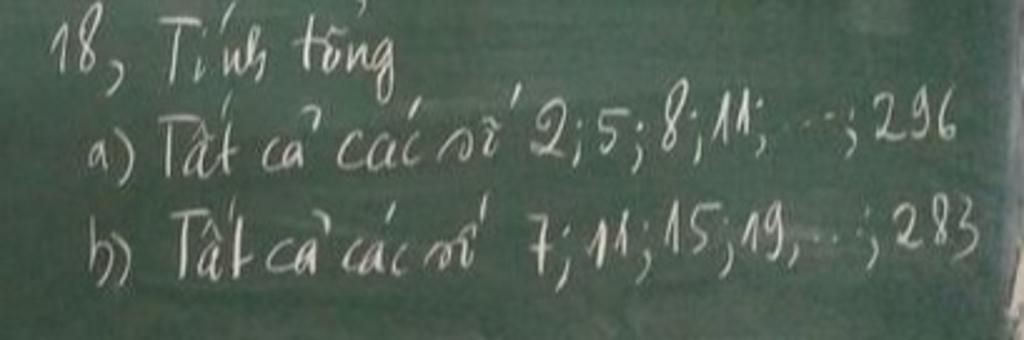 18, Tính tổng
a) Tất cả các số 2; 5; 8; 11; ...; 296
b) Tất cả các số 7; 11; 15; 19, ...; 283